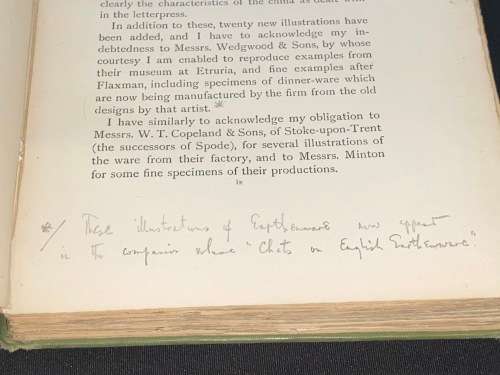 clearly the characteristics of the china as dealt with
in the letterpress.
In addition to these, twenty new illustrations have
been added, and I have to acknowledge my in-
debtedness to Messrs. Wedgwood & Sons, by whose
courtesy I am enabled to reproduce examples from
their museum at Etruria, and fine examples after
Flaxman, including specimens of dinner-ware which
are now being manufactured by the firm from the old
designs by that artist. *
I have similarly to acknowledge my obligation to
Messrs. W. T. Copeland & Sons, of Stoke-upon-Trent
(the successors of Spode), for several illustrations of
the ware from their factory, and to Messrs. Minton
for some fine specimens of their productions.
*/ These illustrations of Earthenware now appear
in the companion volume "Chats on English Earthenware".